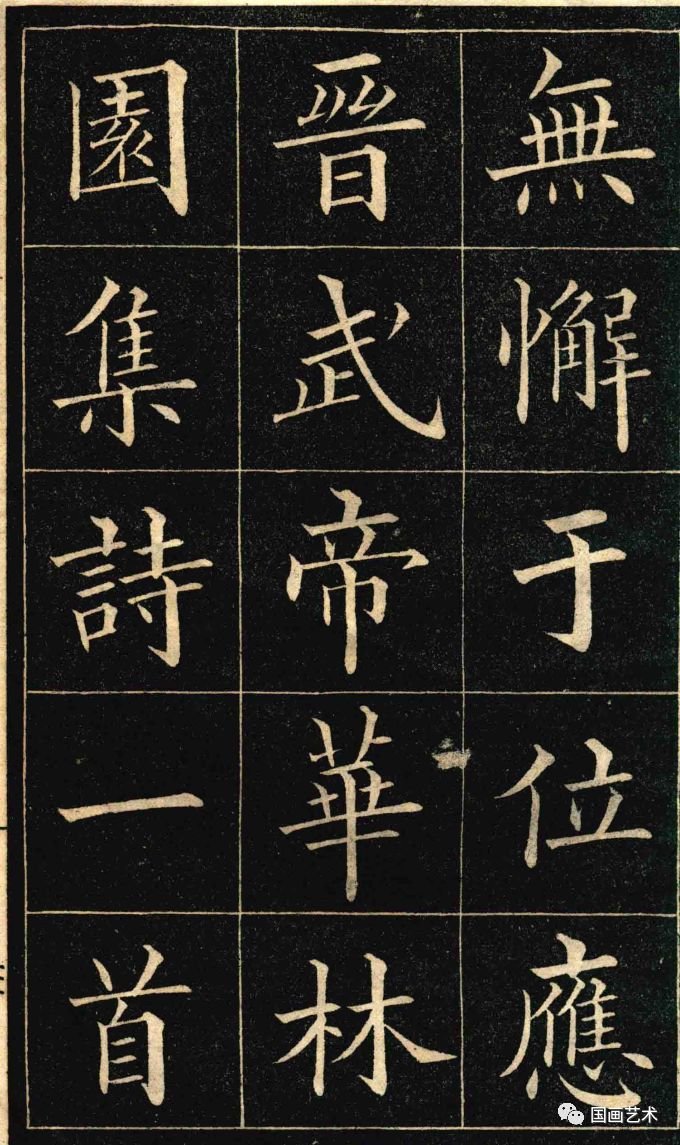 無懈于位應
晉武帝華林
園集詩一首
国画艺术